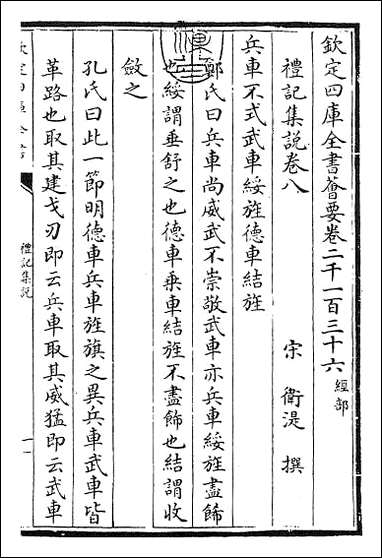 欽定四庫全書薈要卷二千一百三十六 經部
禮記集說卷八
宋 衛湜 撰
兵車不式武車綏旌德車結旌
鄭氏曰兵車尚威武不崇敬武車亦兵車綏旌盡飾
也綏謂垂舒之也德車乘車結旌不盡飾也結謂收
斂之
孔氏曰此一節明德車兵車旌旗之異兵車武車皆
革路也取其建戈刃即云兵車取其威猛即云武車
禮記集說
一